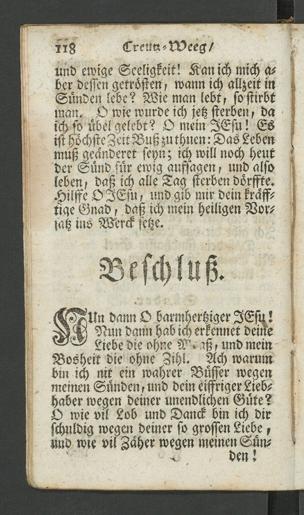 118 Creutz-Weeg/
und ewige Seeligkeit! Kan ich mich a-
ber dessen getrösten, wann ich allzeit in
Sünden lebe? Wie man lebt, so stirbt
man. O wie wurde ich jetz sterben, da
ich so übel gelebt? O mein JEsu! Es
ist höchste Zeit Buß zu thuen: Das Leben
muß geänderet seyn; ich will noch heut
der Sünd für ewig aufsagen, und also
leben, daß ich alle Tag sterben dörffte.
Hilffe O JEsu, und gib mir dein kräff-
tige Gnad, daß ich mein heiligen Vor-
satz ins Werck setze.
Beschluß.
NUn dann O barmhertziger JEsu!
Nun dann hab ich erkennet deine
Liebe die ohne Maaß, und mein
Bosheit die ohne Zihl. Ach warum
bin ich nit ein wahrer Büsser wegen
meinen Sünden, und dein eiffriger Lieb-
haber wegen deiner unendlichen Güte?
O wie vil Lob und Danck bin ich dir
schuldig wegen deiner so grossen Liebe,
und wie vil Zäher wegen meinen Sün-
den!